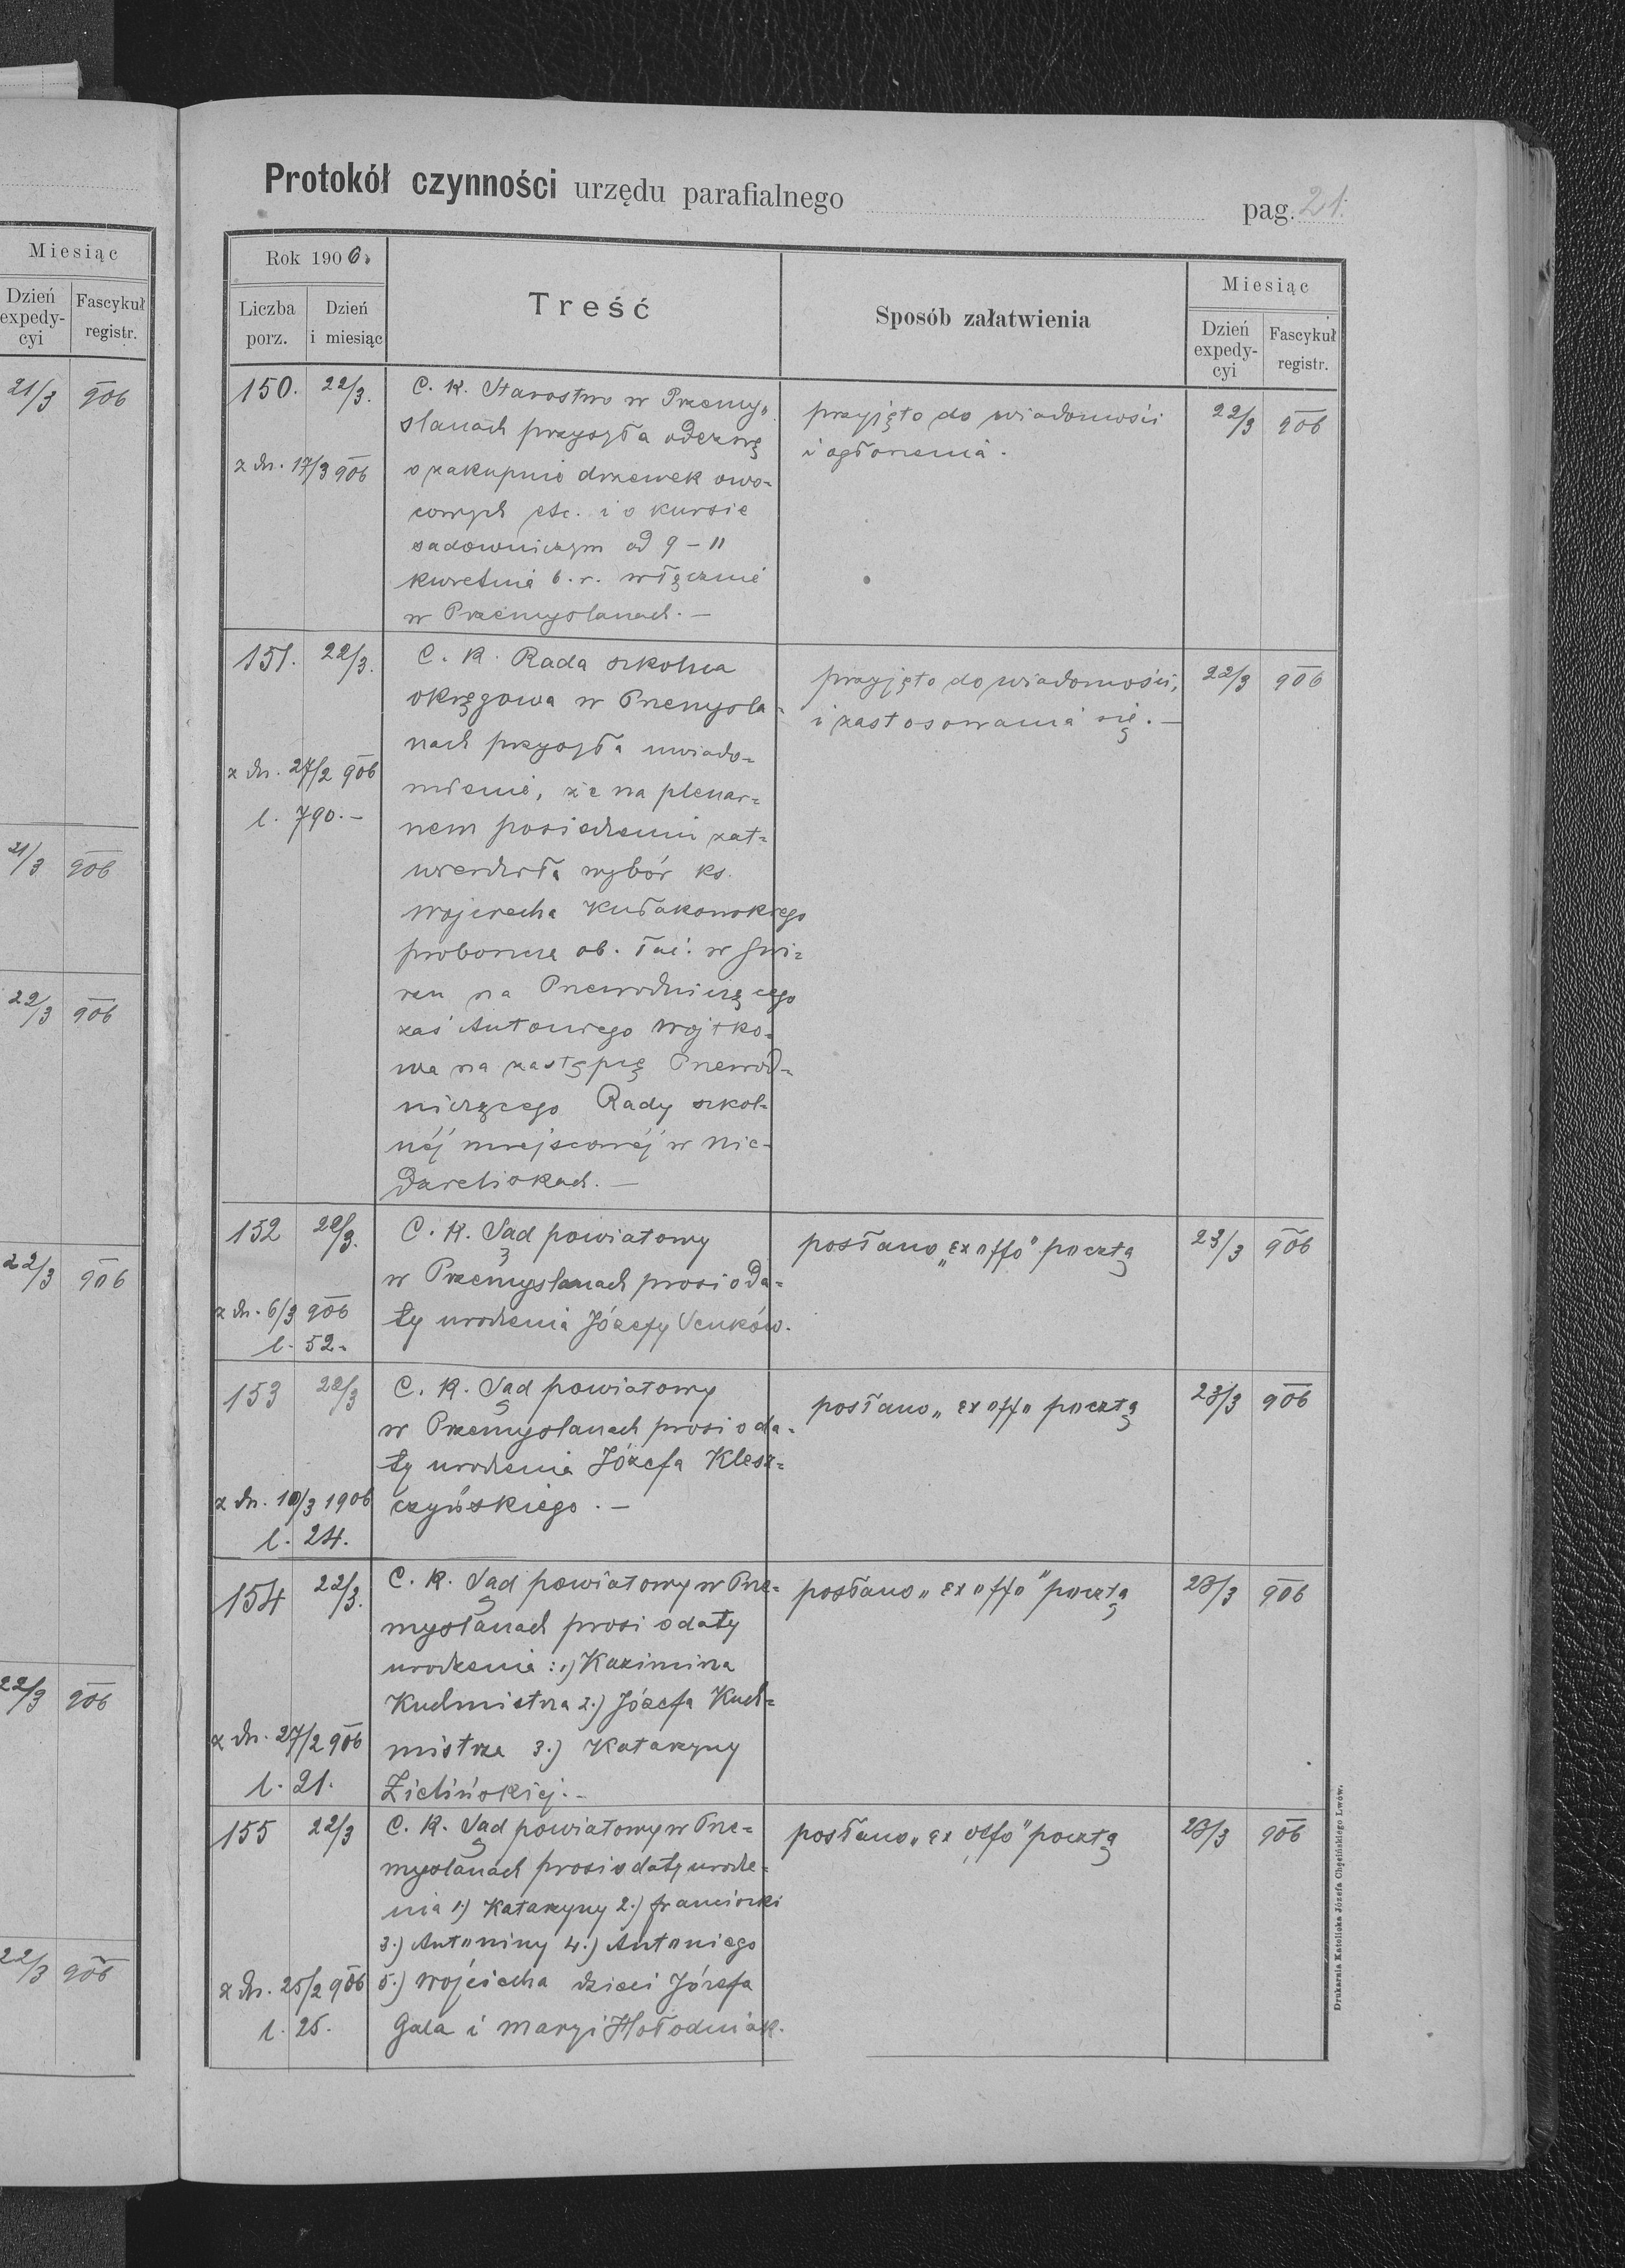 Miesiąc
Dzień expedy-cyi
Fascykuł registr.
21/3 906
21/3 906
22/3 906
22/3 906
22/3 906
22/3 906
Protokół czynności urzędu parafialnego
pag. 21.
Rok 1906.
Liczba porz.
Dzień i miesiąc
Treść
Sposób załatwienia
Miesiąc
Dzień expedy-cyi
Fascykuł registr.
150. 22/3.
z dn. 17/3 906
C. K. Starostwo w Przemy-
slanach przysyła odezwę
o zakupnie drzewek owo-
cowych etc. i o kursie
sadowniczym od 9 - 11
kwietnia b. r. włącznie
w Przemyslanach. —
przyjęto do wiadomości
i ogłoszenia.
22/3 906
151. 22/3.
z dn. 27/2 906
l. 790. —
C. K. Rada szkolna
okręgowa w Przemysla-
nach przysyła uwiado-
mienie, że na plenar-
nem posiedzeniu zat-
wierdziła wybór ks.
Wojciecha Kułakowskiego
proboszcza ob. łać. w
na Przewodniczącego
zaś Antoniego Wojtko-
wa na zastępcę Przewod-
niczącego Rady szkol-
néj miejscowéj w Nie-
dzieliskach. —
przyjęto do wiadomości,
i zastosowania się. —
22/3 906
152 22/3.
z dn. 6/3 906
l. 52.
C. K. Sąd powiatowy
w Przemyslanach prosi o da-
ty urodzenia Józefy Senków.
posłano „ex offo" pocztą
23/3 906
153 22/3
z dn. 10/3 1906
l. 24.
C. K. Sąd powiatowy
w Przemyslanach prosi o da-
ty urodzenia Józefa Klesz-
czyńskiego. —
posłano „ex offo pocztą
23/3 906
154 22/3.
z dn. 27/2 906
l. 21.
C. K. Sąd powiatowy w Prze-
myslanach prosi o daty
urodzenia: 1) Kazimirza
Kuchmistrza 2.) Józefa Kuch-
mistrza 3.) Katarzyny
Zielińskiej. —
posłano „ex offo" pocztą
23/3 906
155 22/3
z dn. 25/2 906
l. 25.
C. K. Sąd powiatowy w Prze-
myslanach prosi o daty urodze-
nia 1) Katarzyny 2.) Franciszki
3.) Antoniny 4.) Antoniego
5.) Wojciecha dzieci Józefa
Gala i Maryi Hołodniak.
posłano „ex offo" pocztą
23/3 906
Drukarnia Katolicka Józefa Chęcińskiego Lwów.